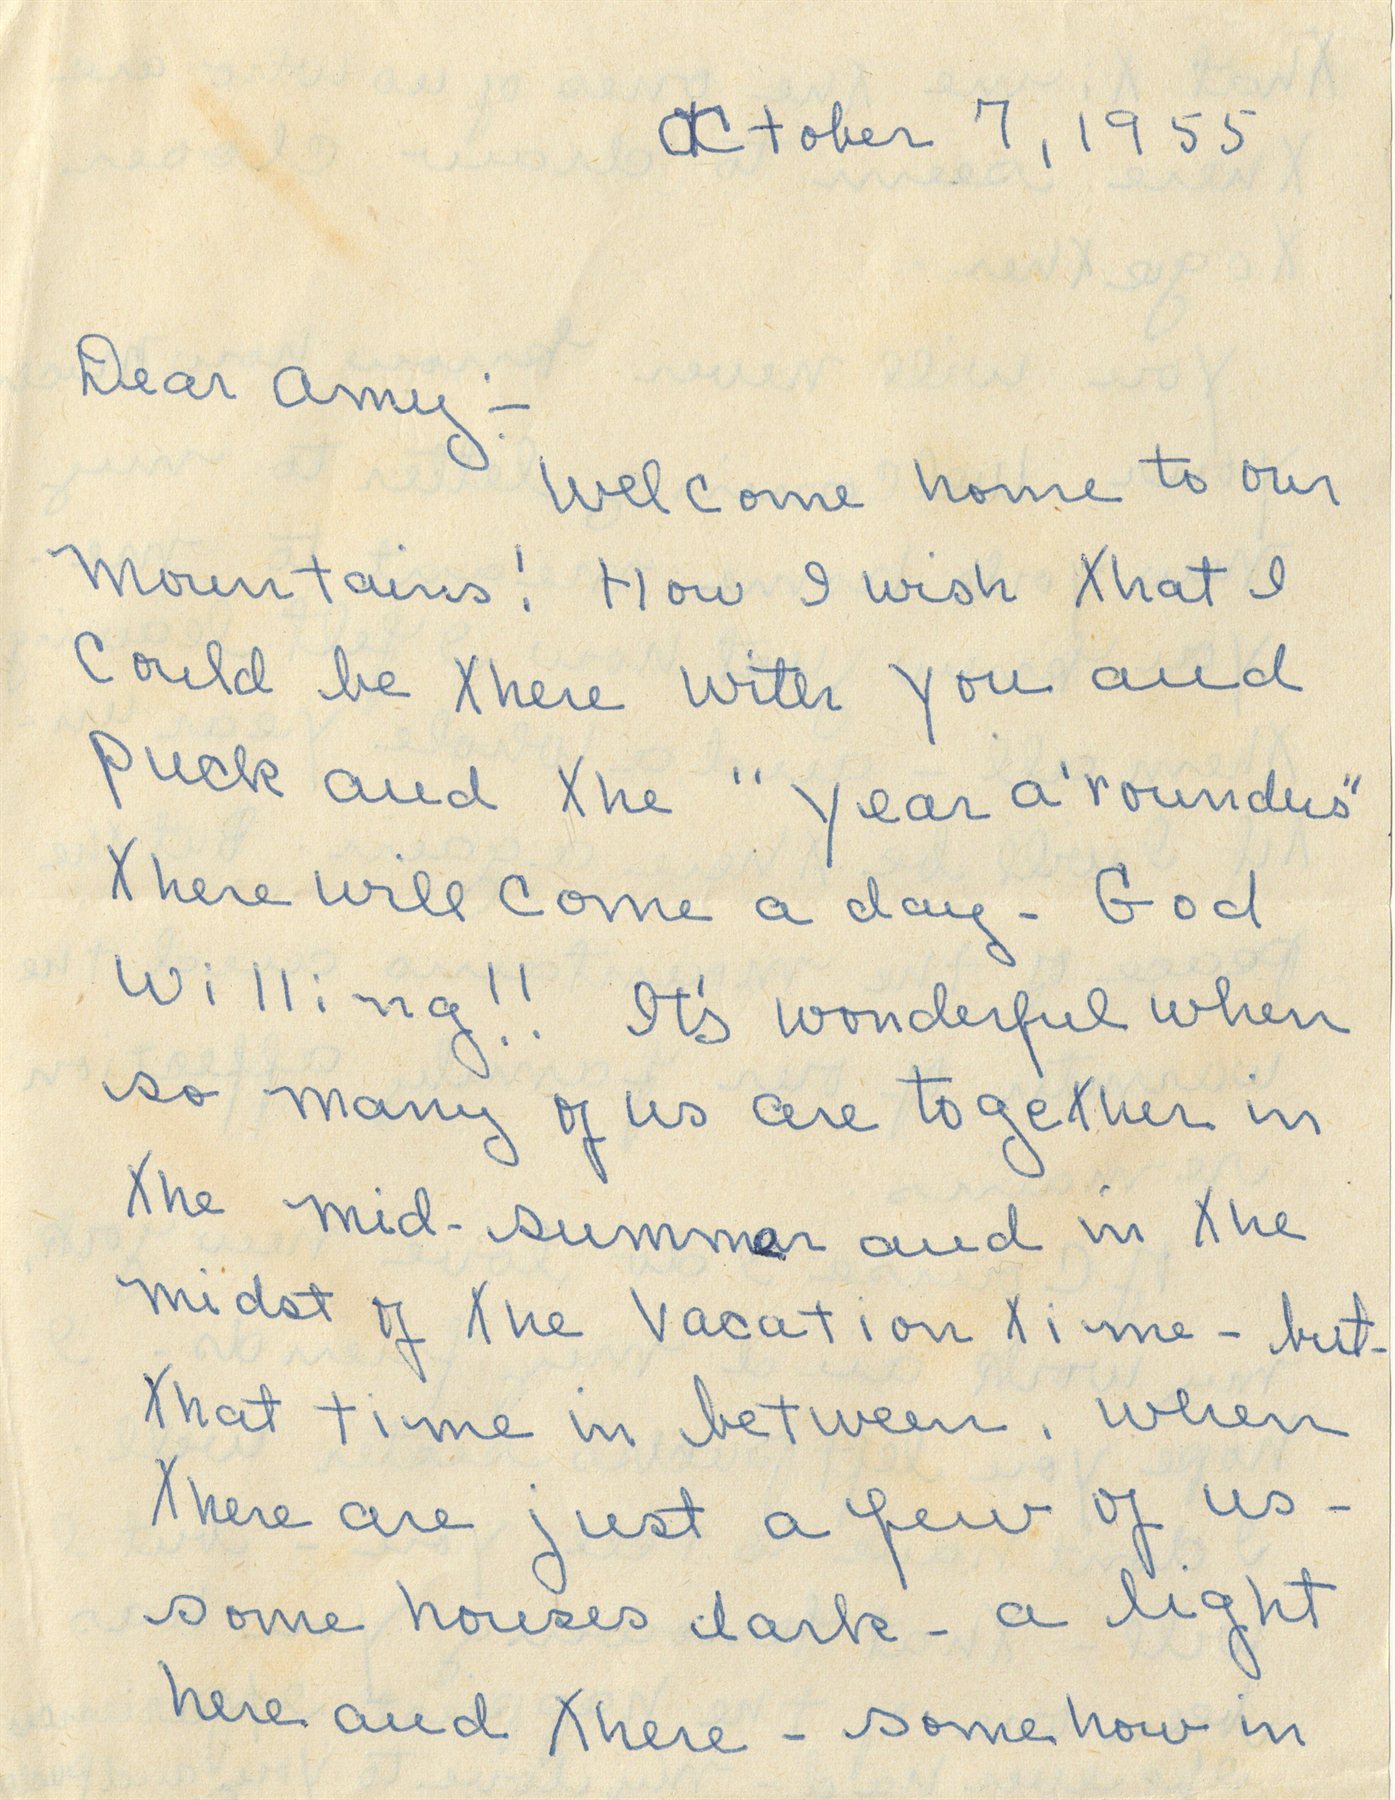 October 7, 1955
Dear Amy:-
Welcome home to our
Mountains! How I wish that I
could be there with you and
Puck and the "year a'rounders"
There will come a day - God
willing!! It's wonderful when
so many of us are together in
the mid-summer and in the
midst of the vacation time - but -
that time in between, when
there are just a few of us -
some houses dark - a light
here and there - somehow in